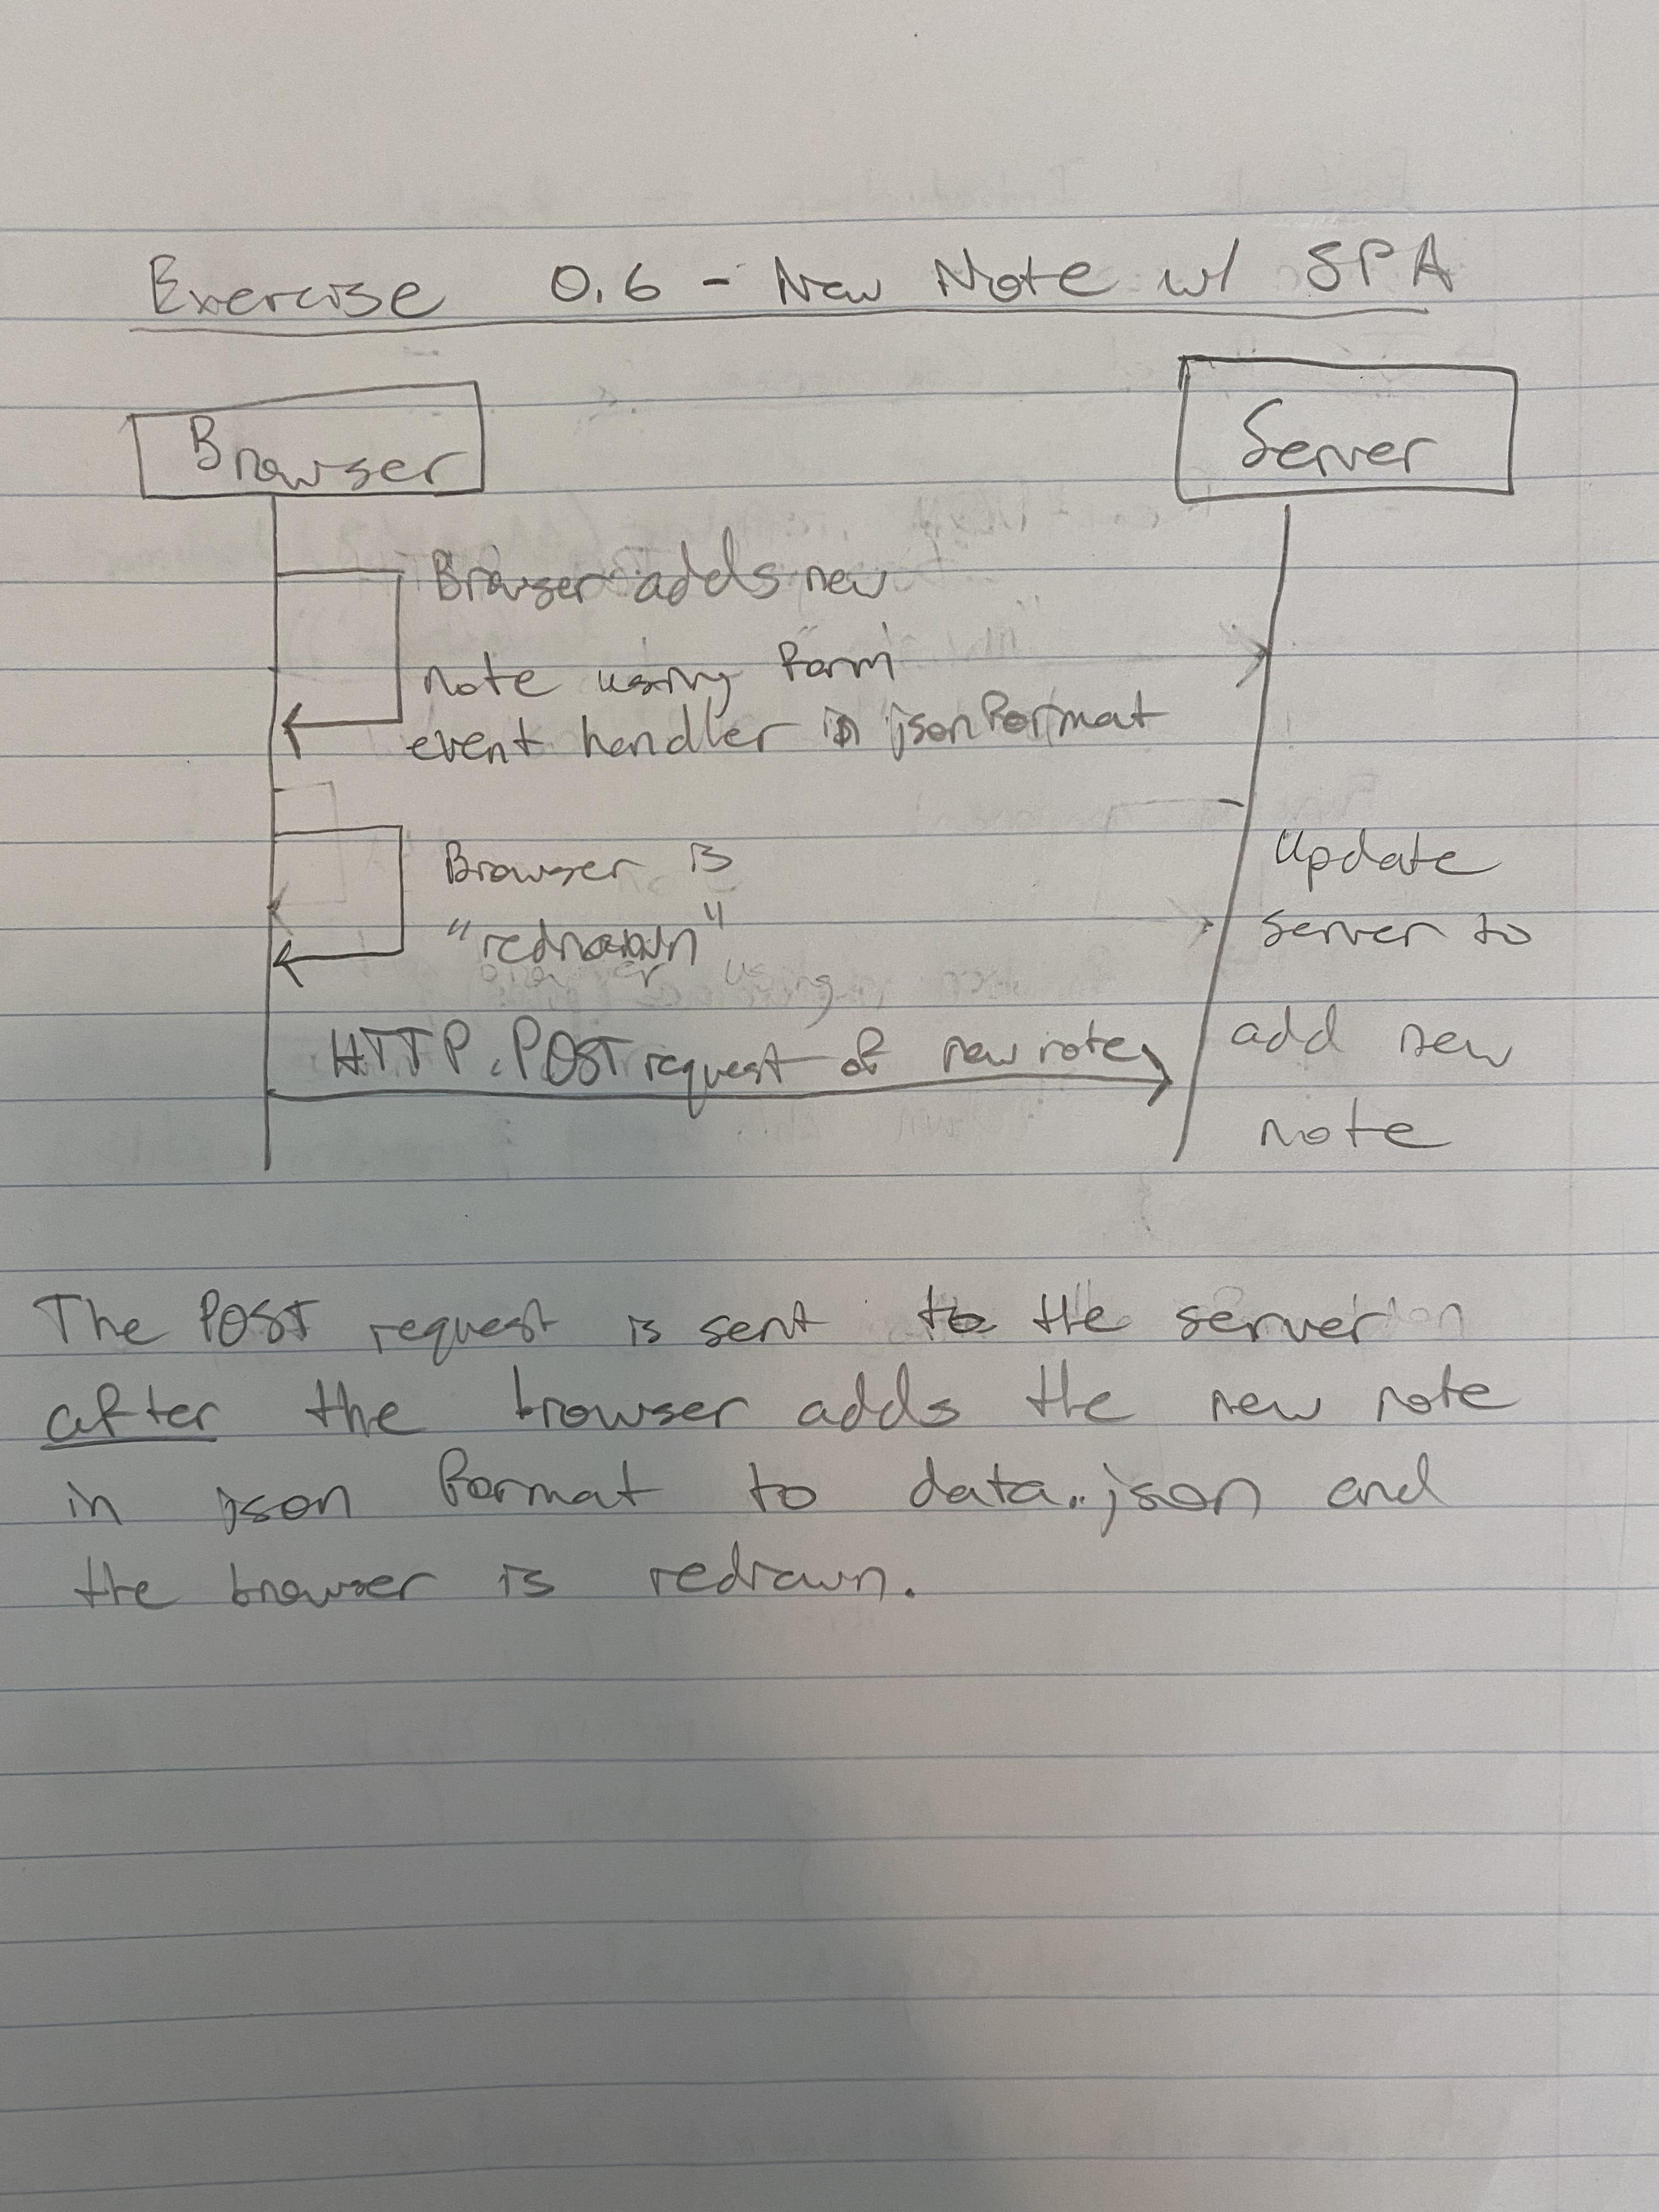 Exercise 0.6 - New Note w/ SPA
Browser
Server
Browser adds new
note using form
event handler in json format
Browser is
"redrawn"
HTTP POST request of new note
Update
server to
add new
note
The POST request is sent to the server
after the browser adds the new note
in json format to data.json and
the browser is redrawn.